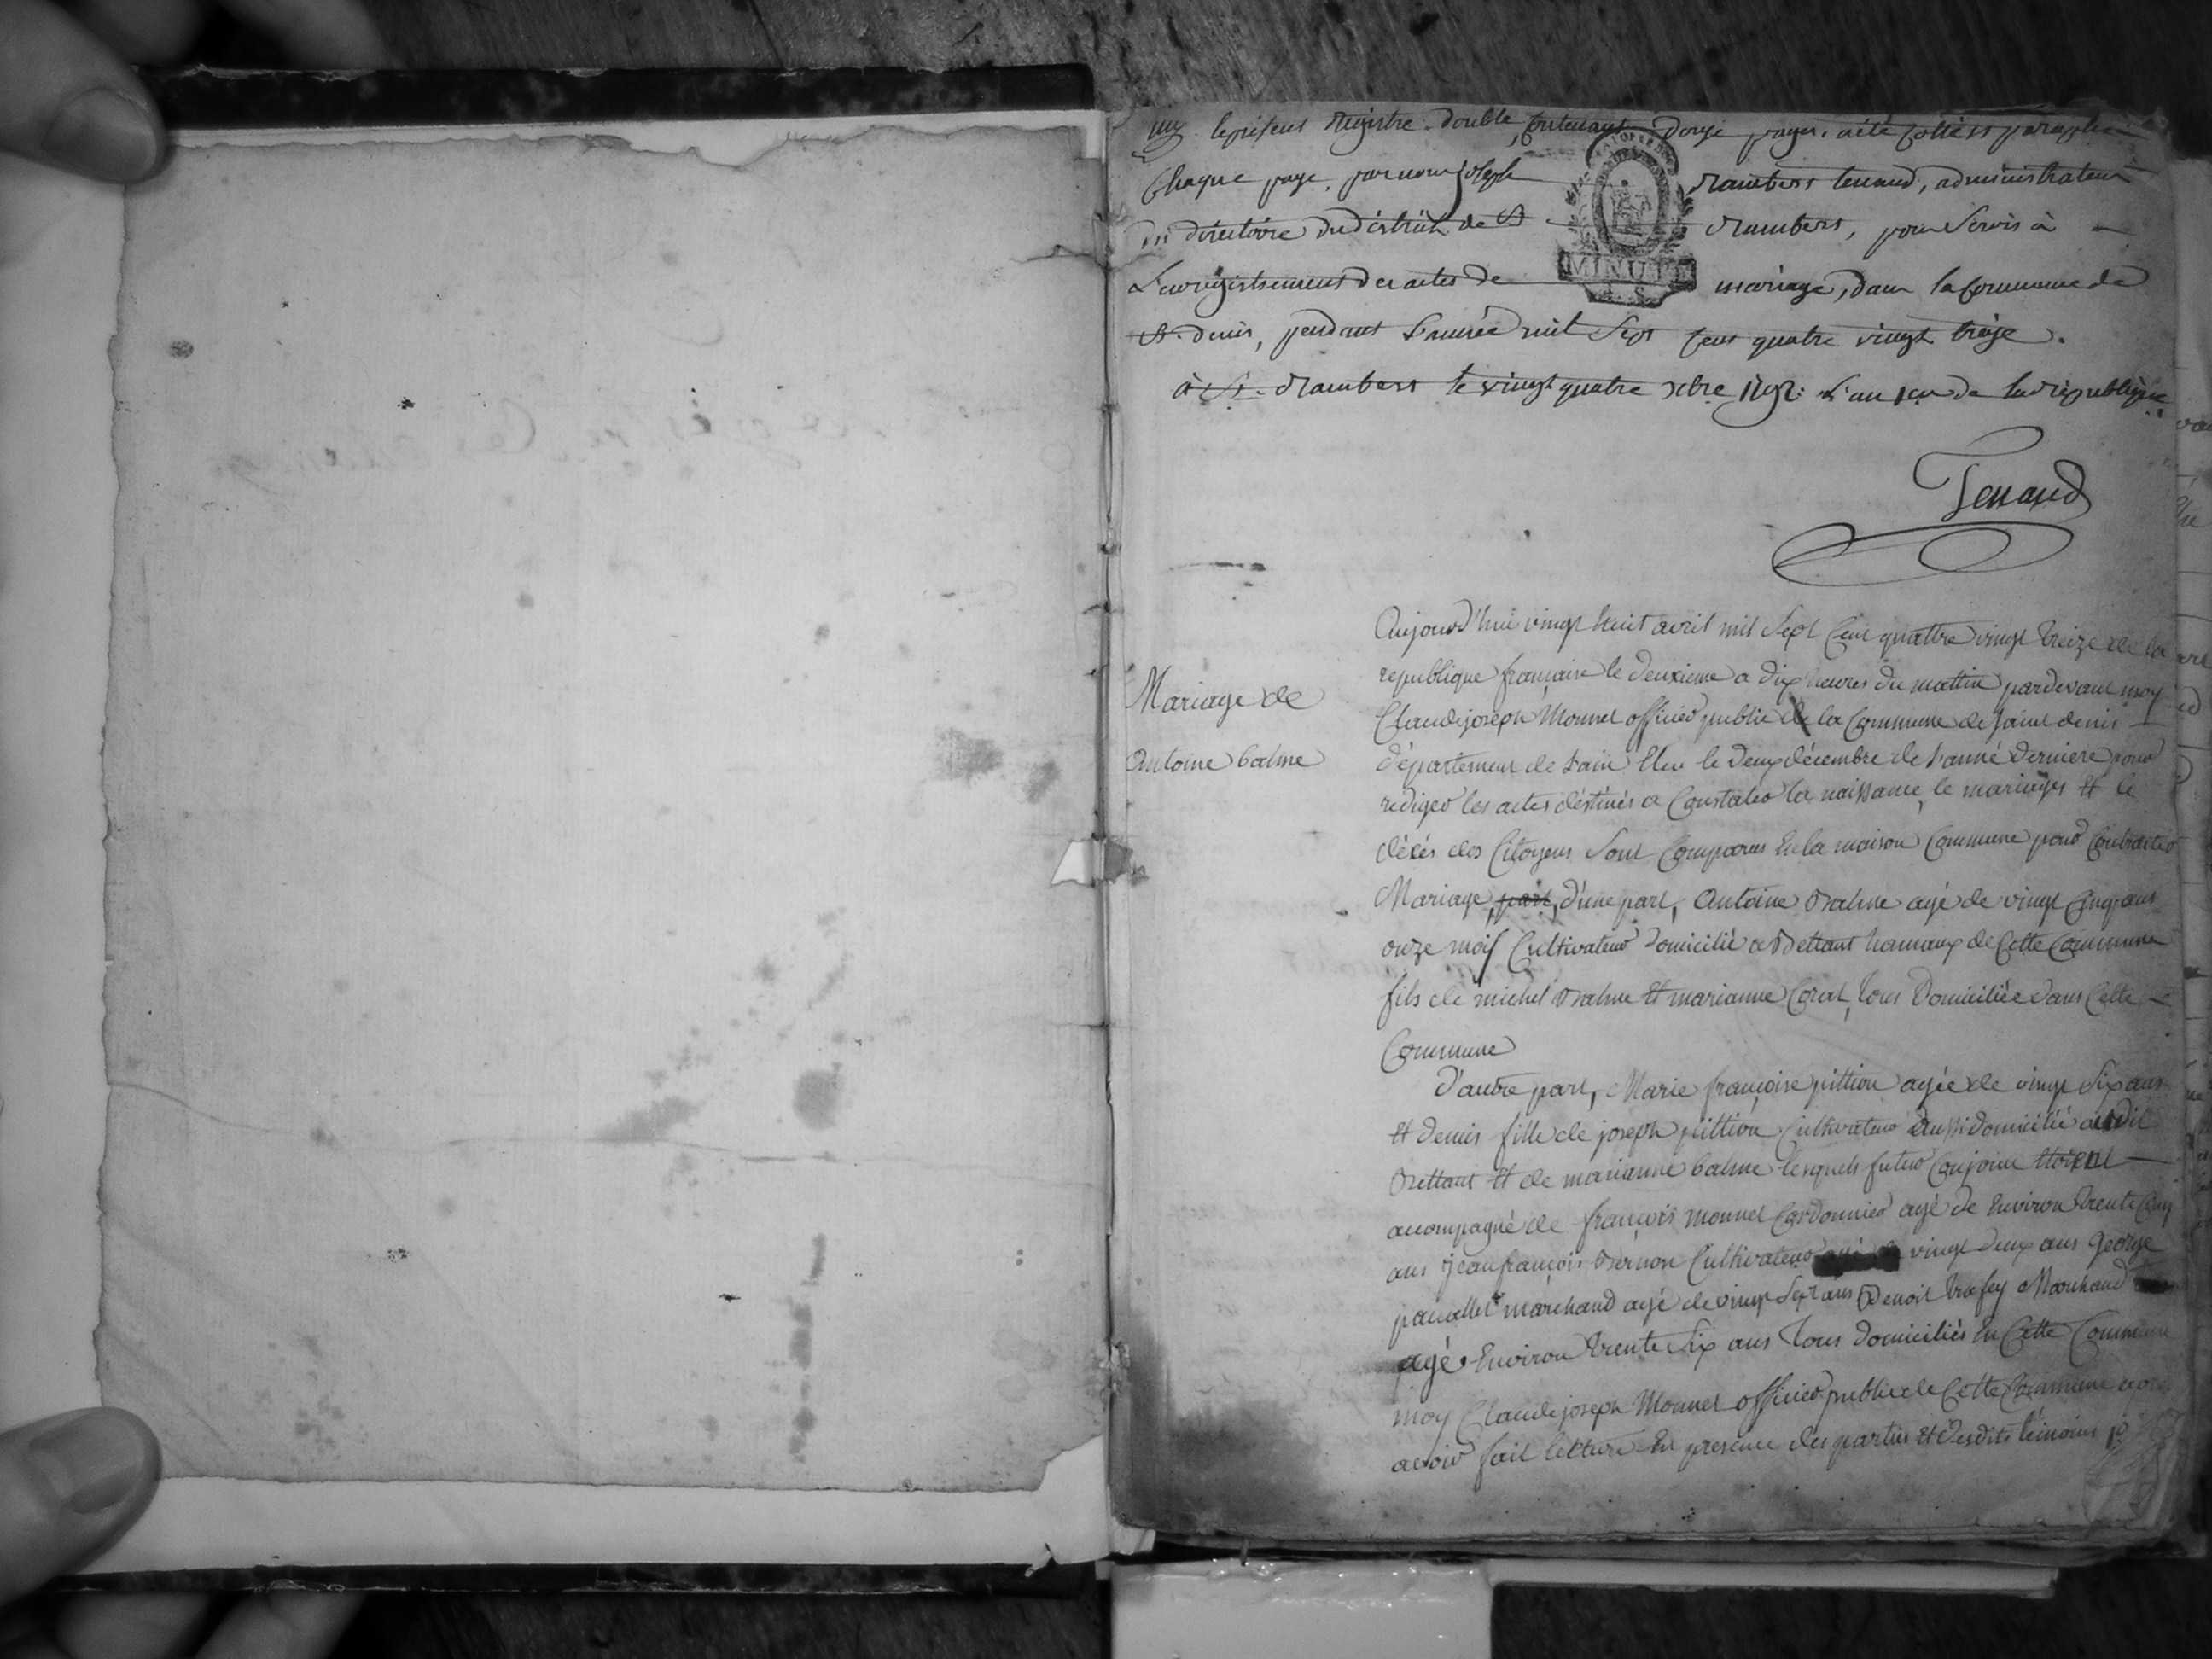 le présent Registre double, contenant douze pages, a été cotté et paraphé
Chaque page, par nous joseph Rambert tenand, administrateur
du directoire du district de St Rambert, pour servir à
L'enregistrement des actes de mariage, dans la commune de
St. denis, pendant l'année mil sept cent quatre vingt treize.
à St. Rambert le vingt quatre Xbre 1792: L'an 1er de la république
Tenand
MINUTE
Mariage de
Antoine balme
Aujourd'hui vingt huit avril mil Sept Cent quattre vingt treize de la
republique française le deuxieme a dix heures du mattin pardevant moy
Claude joseph Monnet officier public de la Commune de saint denis
département de l'ain Elu le deux décembre de l'anné derniere pour
rediger les actes déstinés a Constater la naissance, le mariages Et le
décés des Citoyens Sont Comparus En la maison Commune pour Contracter
Mariage, part, d'une part, Antoine Balme agé de vingt Cinq ans
onze mois Cultivateur domicilié a Bettant hamaux de Cette Commune
fils de michel Balme Et marianne Corat, tous Domiciliée dans Cette
Commune
D'autre part, Marie françoise pittion agée de vingt Six ans
Et demis fille de joseph pittion Cultivateur aussi domicilié audit
Bettant Et de marianne balme lesquels futur Conjoint Etoient
accompagné de françois monnet Cordonnier agé de Environ trente Cinq
ans jean françois Bernon Cultivateur agé de vingt deux ans George
marchand agé de vingt Sept ans Benoit trafey Marchand
agé Environ trente Six ans tous domiciliés En Cette Commune
moy Claude joseph Monnet officier public de Cette Commune apres
avoir fait lecture En presence des parties Et desdits témoins